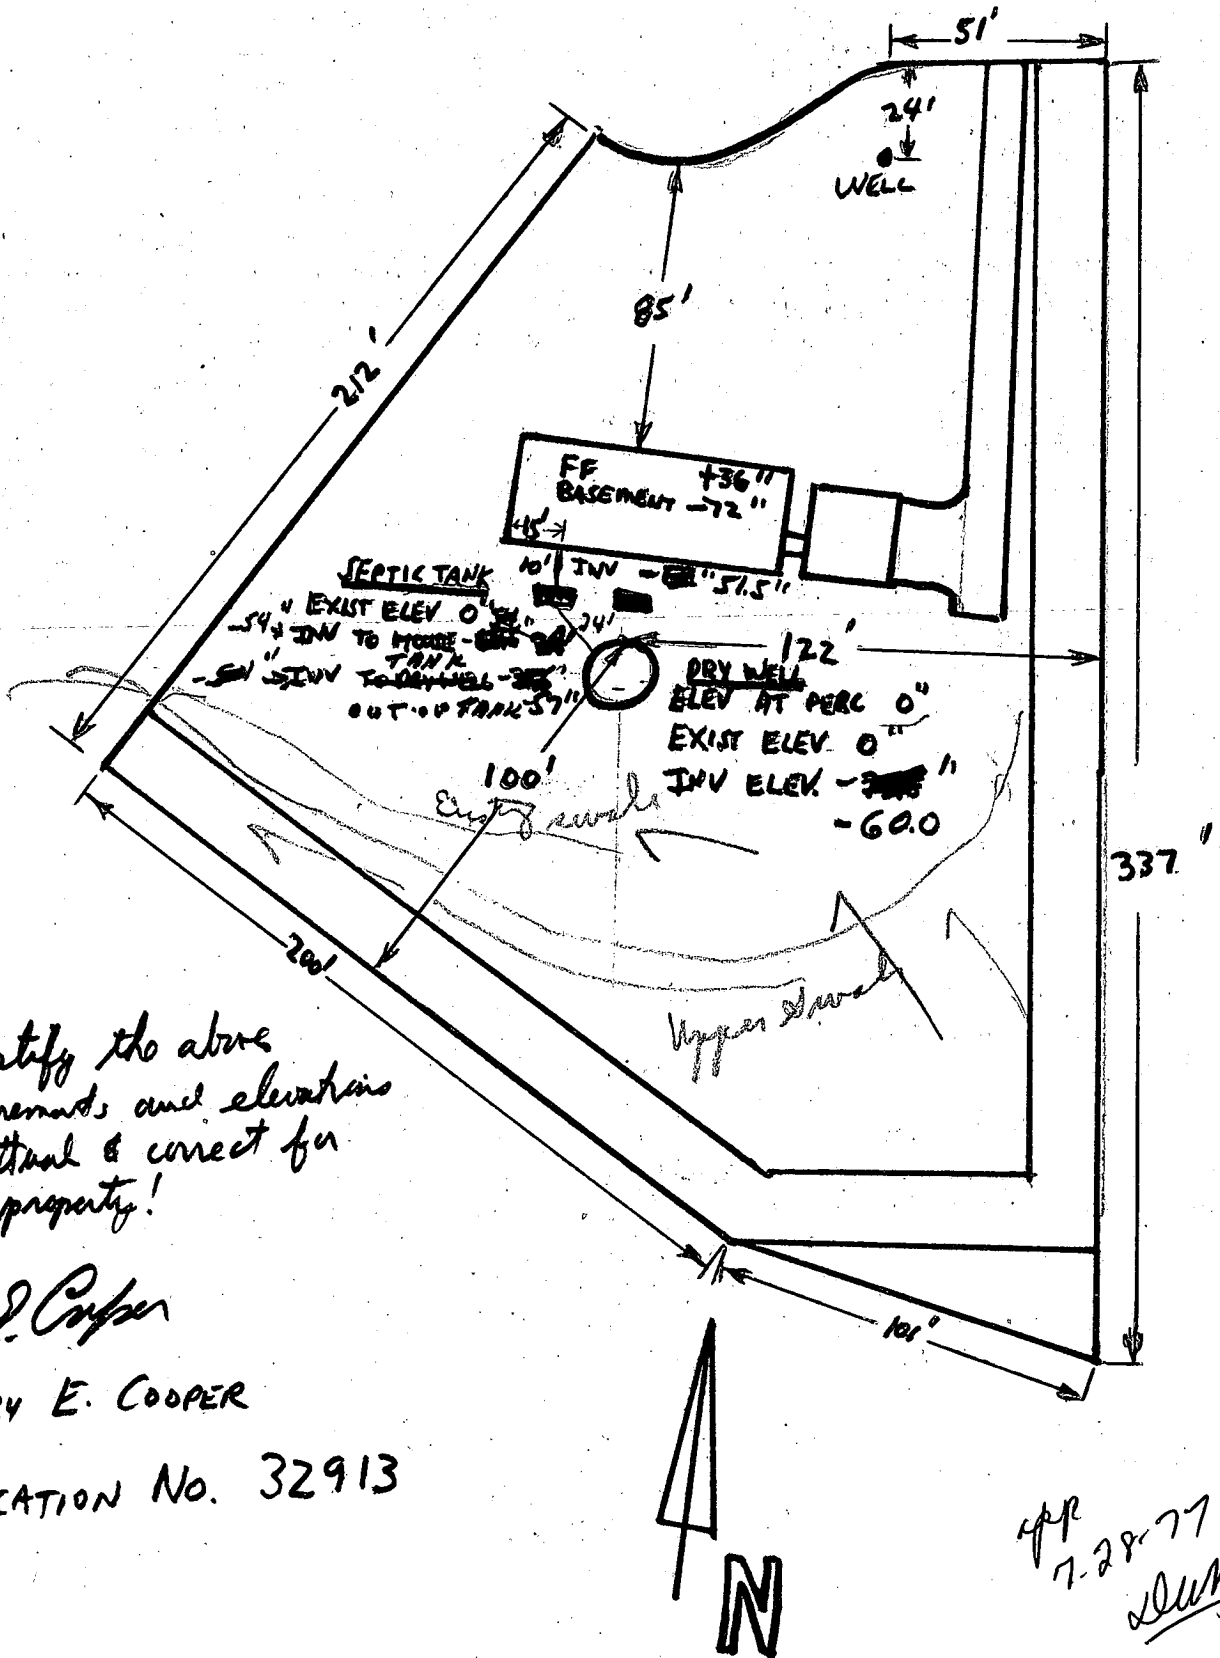 51'
24'
WELL
85'
212'
FF +36"
BASEMENT -72"
15'
10' INV - " 51.5"
SEPTIC TANK
EXIST ELEV 0"
-54" INV TO HOUSE -
TANK
INV TO DRYWELL -
OUT OF TANK -57"
24'
122'
DRY WELL
ELEV AT PERC 0"
EXIST ELEV. 0"
INV ELEV. - "
-60.0
100'
Existing swale
337'
200'
Upper Swale
tify the above
rements and elevations
tual & correct for
property!
E. Cooper
y E. COOPER
ICATION No. 32913
101'
N
app
7-28-77